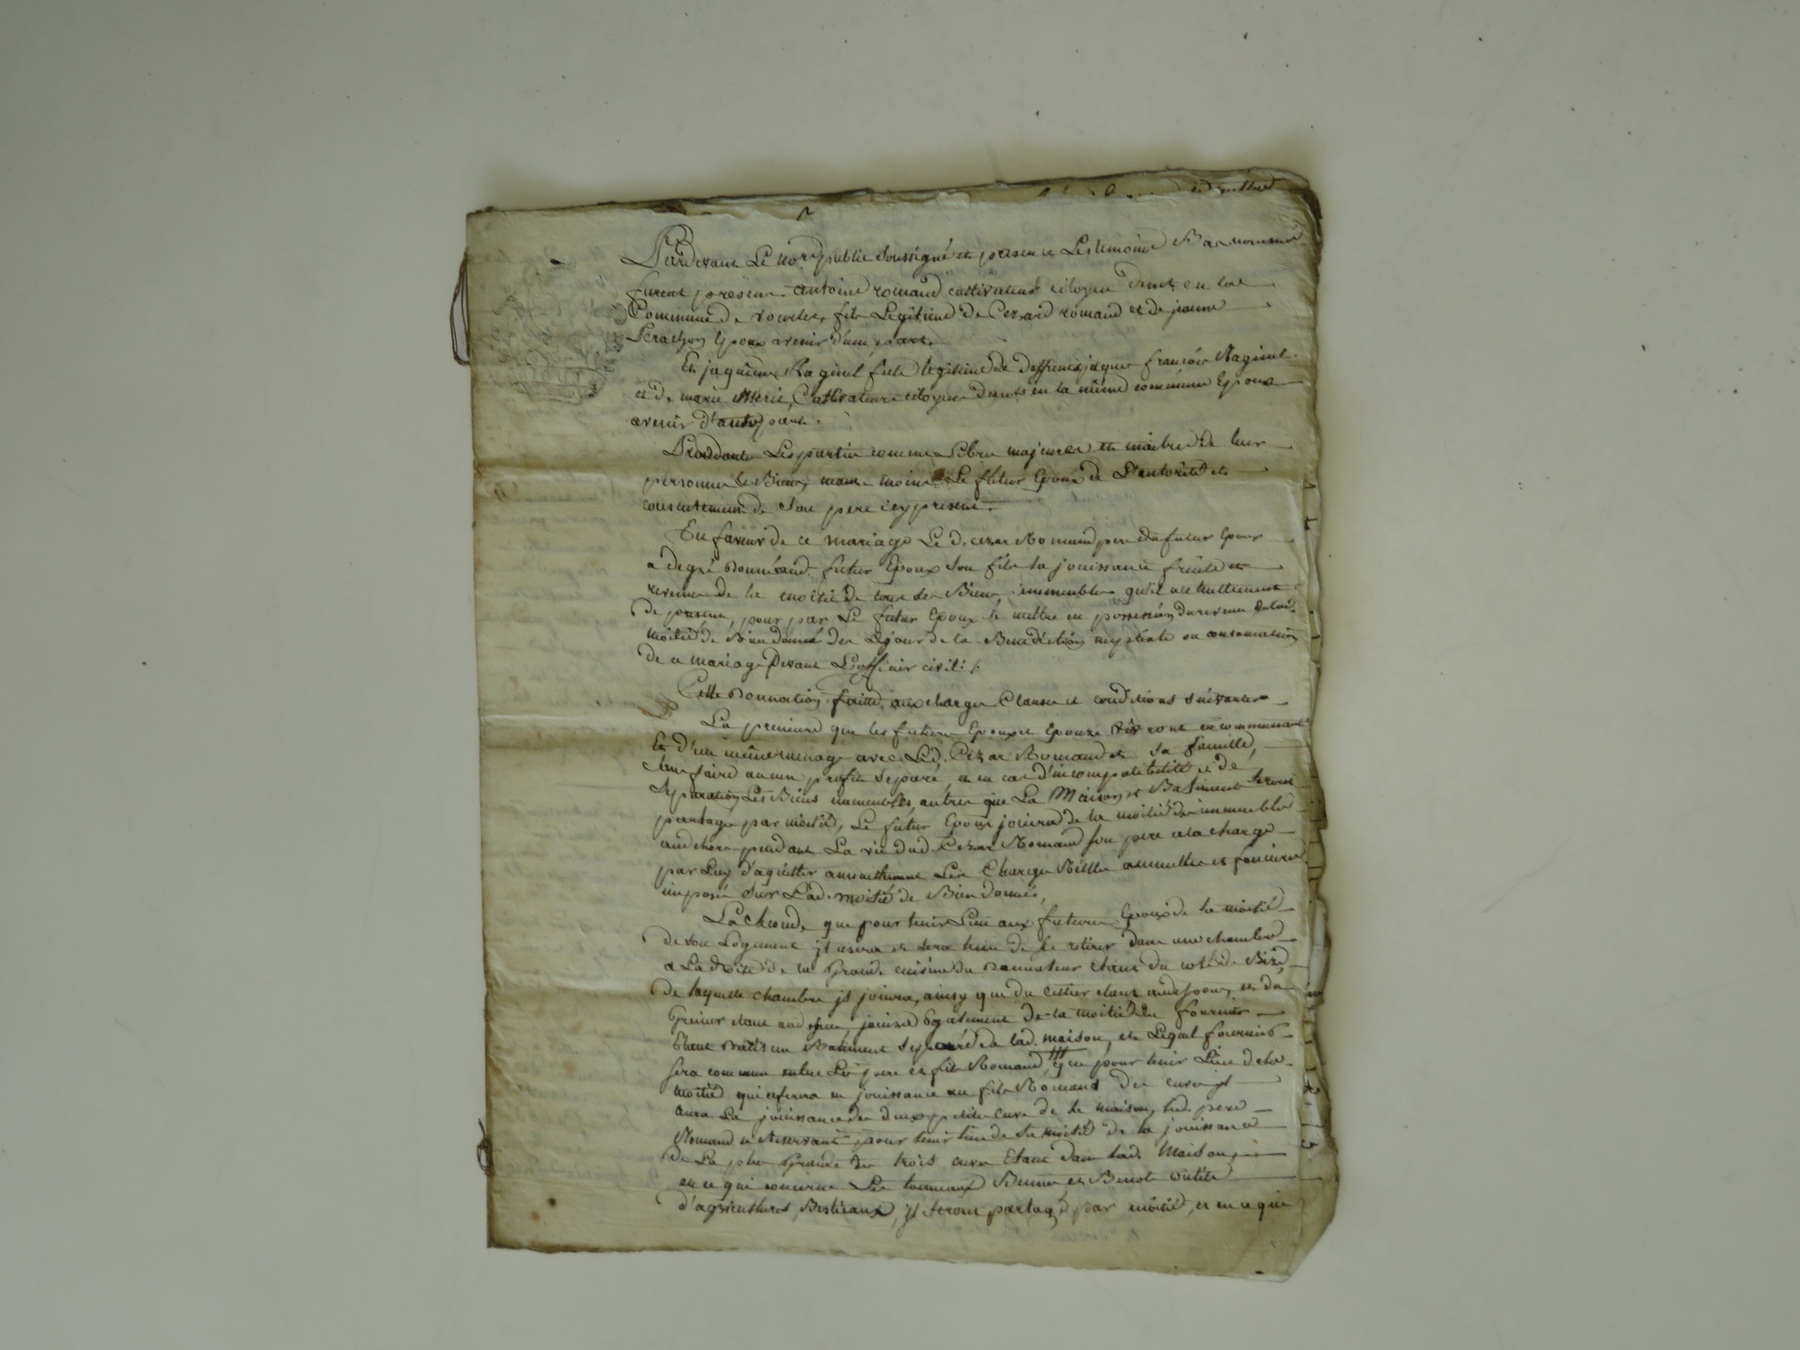 Pardevant Le nore public soussigné et présence Les témoins Bas nommés
furent présens antoine romand cultivateur citoyen demt en la
Commune de fils Légitime de Cezard romand et de jeanne
Epoux avenir d'une part.
Et jaquème Raginel fille légitime de deffunt jaques françois Raginel
et de marie Cultivateurs citoyens dants en la même commune Epouse
avenir d'autre part.
Procédants Les parties comme Libres majeures et maitres de leur
personnes & Biens, neanmoins Le futur Epoux de L'autorité et
consentement de Son pere icy présent.
En faveur de ce mariage Le d. cezar Romand pere du futur Epoux
a de gré Donné aud. futur Epoux Son fils la jouissance fruits et
revenus de la moitié de tous ses Biens immeubles qu'il a actuellement
de présent, pour par Le futur Epoux Se mettre en possession du revenu de lad.
moitié de Bien donné des Le jour de la Benediction nuptiale ou consomation
de ce mariage Devant L'officier civil.
Cette Donnation faitte aux charges Clauses et conditions suivantes
La premiere que les futurs Epoux et Epouze vivront en communauté
Et d'un même ménage avec Led. Cezar Romand et Sa famille,
sans faire aucun profit Separé, et en cas d'incompatibilité et de
Séparation Les Biens immeubles, autres que La Maison et Batiment seront
partagés par moitié, Le futur Epoux jouira de la moitié des immeubles
au dehors pendant La vie dud. Cezar Romand Son pere a la charge
par Luy d'aquitter annuellement Les Charges Réelles annuelles et foncieres
imposés Sur Lad. moitié de Bien donnés,
La Seconde, que pour tenir Lieu aux futurs Epoux de la moitié
de Son Logement jl aura et sera tenu de Se retirer dans une chambre
a La droite de la Grande cuisine du Donnateur étant du coté de Bize,
de laquelle chambre jl jouira, ainsy que du Cellier étant au dessous, et du
Grenier étant au dessus, jouira Egalement de la moitié du fournier
Etant dans un Batiment Separé de lad. maison, et Lequel fournier
Sera commun entre Les pere et fils Romand, que pour tenir Lieu de la
moitié qui aferra en jouissance au fils Romand des cuves jl
aura La jouissance des deux petites Cuves de la maison, led. pere
Romand se Réservant pour tenir lieu de Sa moitié de la jouissance
de La plus Grande des trois cuves Etant dans lad. Maison,
en ce qui concerne Les tonneaux Bennes et Benots outils
d'agricultures, Bestiaux, jls Seront partagés par moitié, et en ce qui